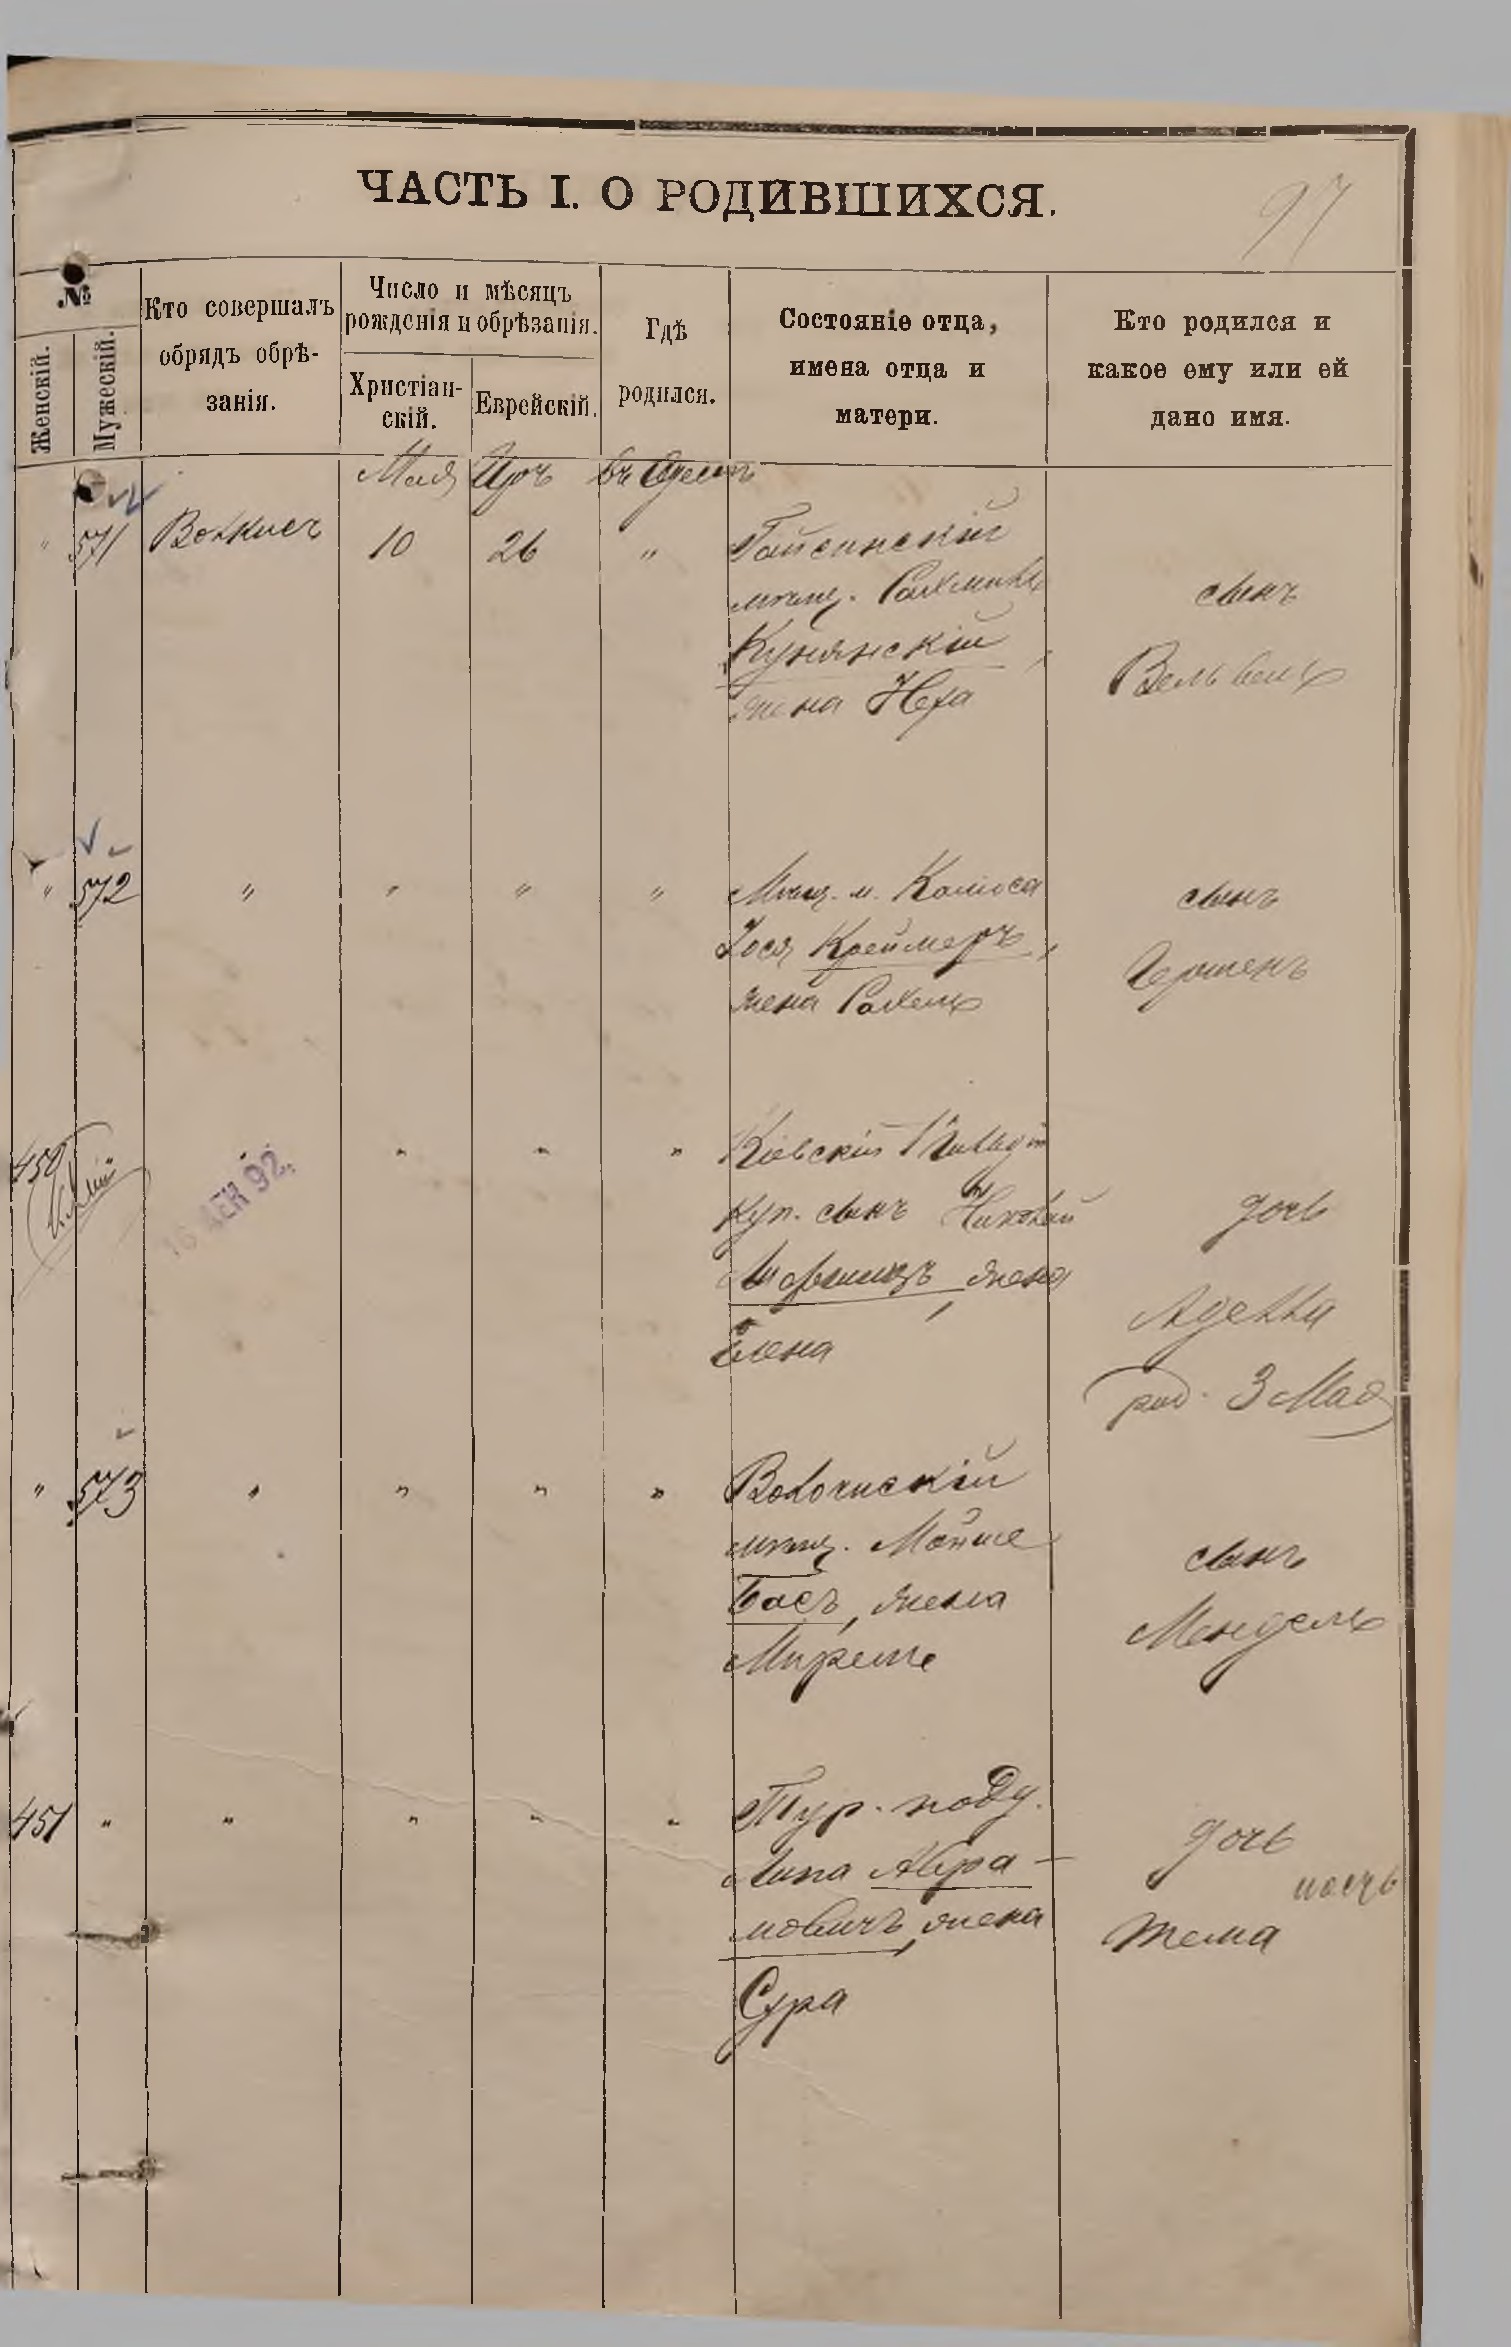 ЧАСТЬ I. О РОДИВШИХСЯ.
97
№
Женскій.
Мужескій.
Кто совершалъ
обрядъ обрѣ-
занія.
Число и мѣсяцъ
рожденія и обрѣзанія.
Христіан-
скій.
Еврейскій.
Гдѣ
родился.
Состояніе отца,
имена отца и
матери.
Кто родился и
какое ему или ей
дано имя.
Мая Іяръ въ Одессѣ
" 571 10 26 " Гайсинскій
мѣщ. Рахмиль
Кунянскій,
жена Неха
сынъ
Вельвель
" 572 " " " " Мѣщ. м. Калиоса
Іося Креймеръ,
жена Рахель
сынъ
Гершенъ
450 " " " Кіевскій
16 ДЕК 92.
куп. сынъ Николай
жена
Елена
дочь
Аделла
род. 3 Мая
" 573 " " " " Волочискій
мѣщ. Мойше
Басъ, жена
Миреле
сынъ
Мендель
451 " " " " " Тур. подд.
Липа Абра-
мовичъ, жена
Сура
дочь
Тема